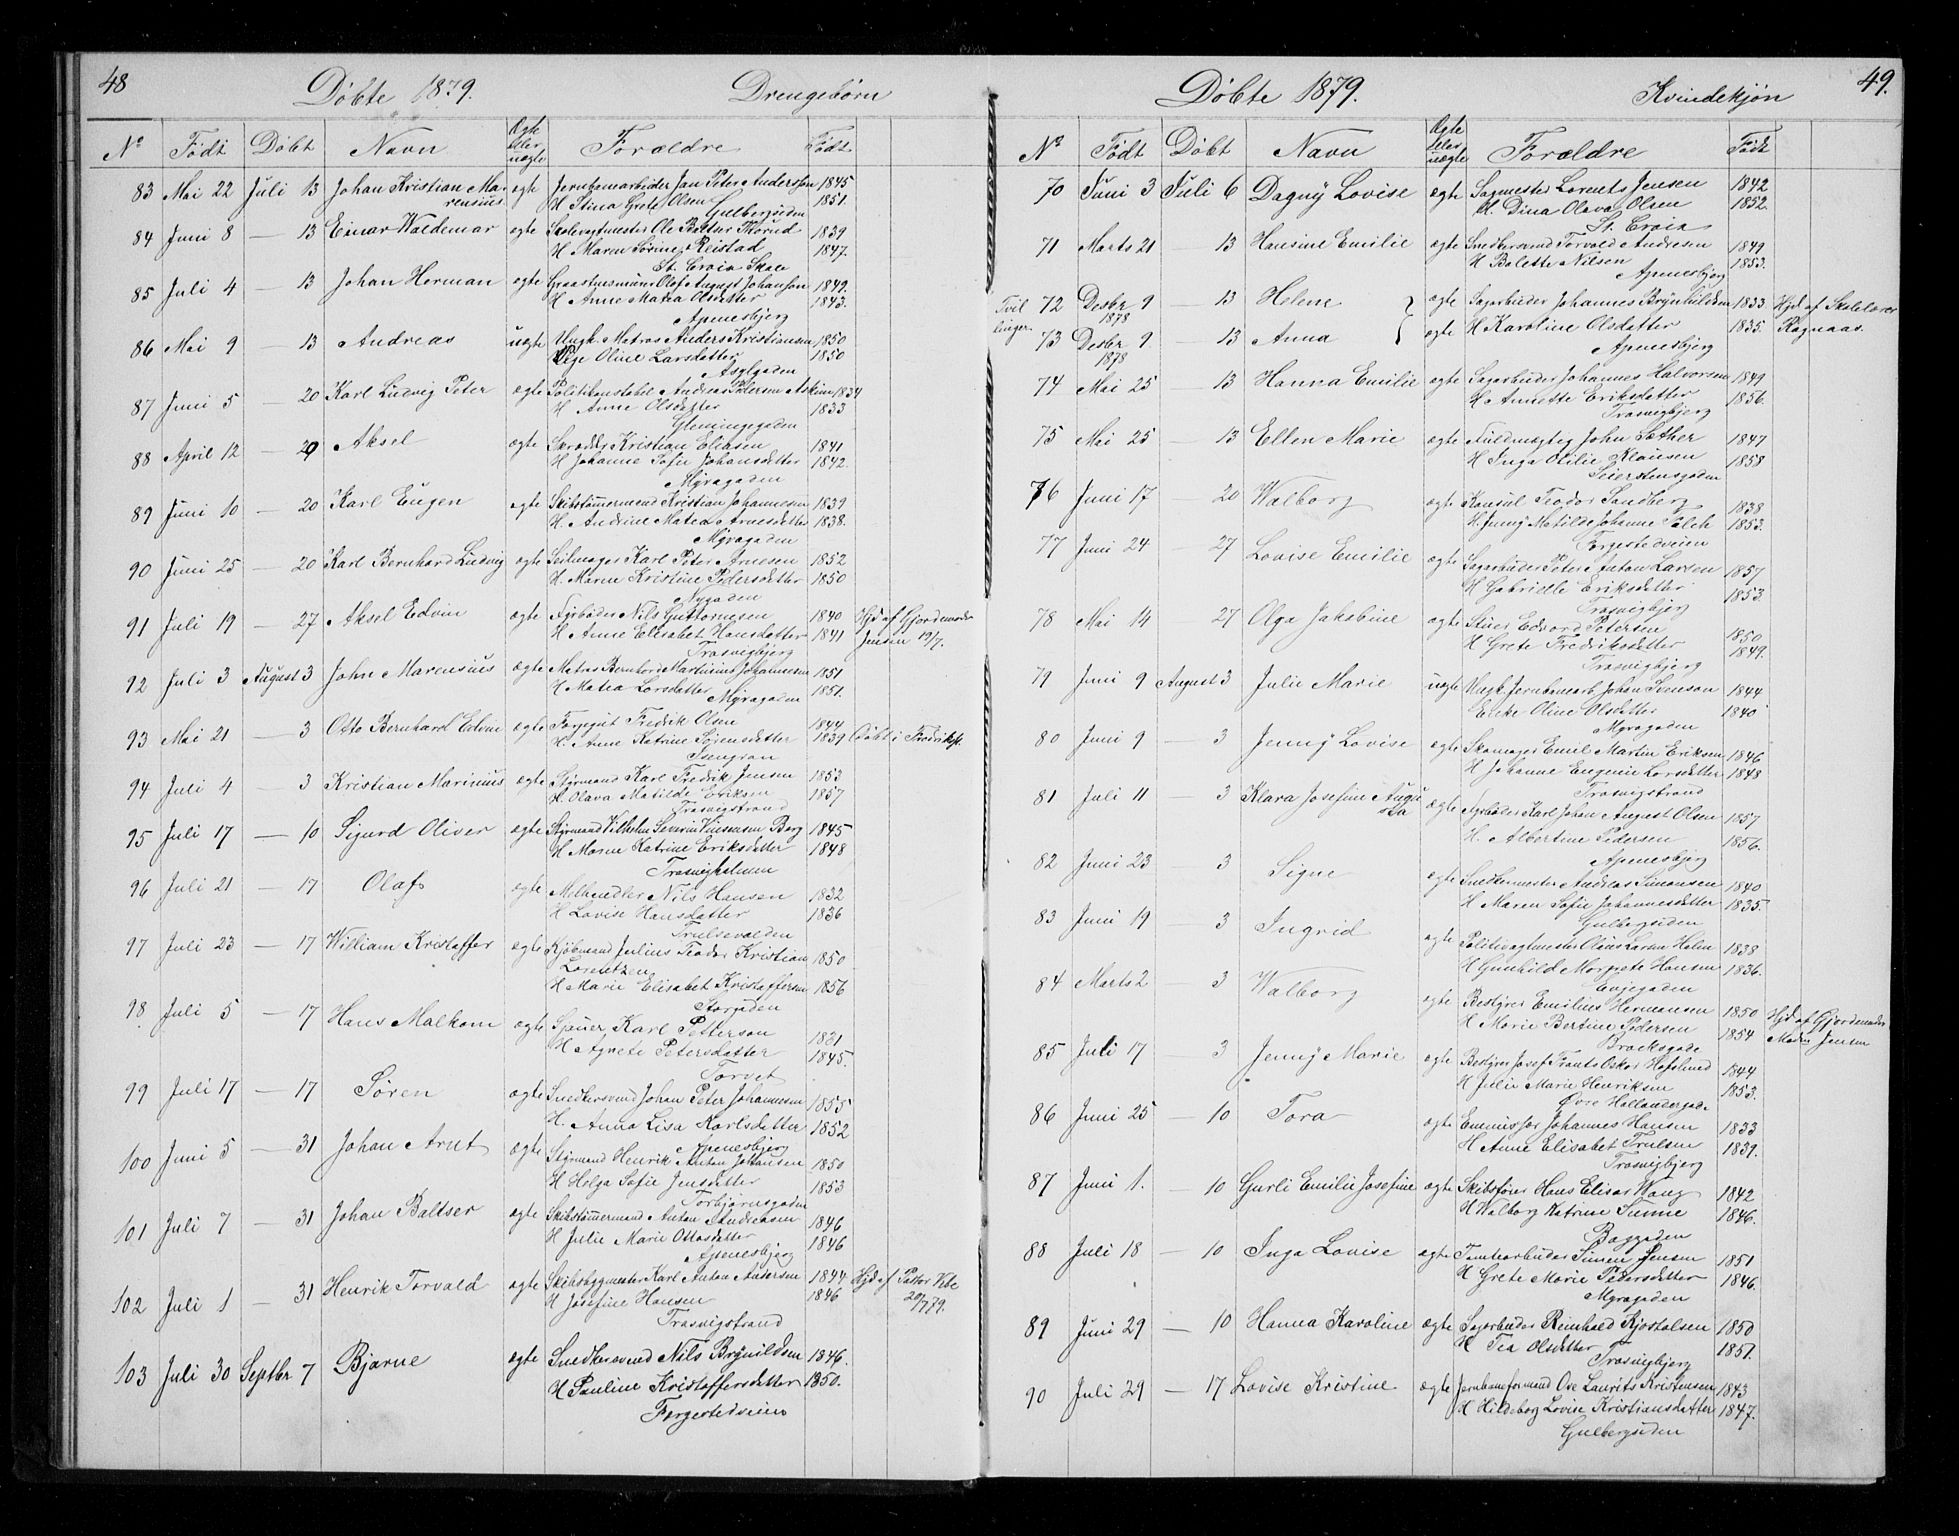 48
Döbte 1879. Drengebörn
No Födt Döbt Navn Ægte eller uægte Forældre Födt
83 Mai 22 Juli 13 Johan Kristian Ma- ægte Jernbanearbeider Jan Peter Andersson 1845
rensius H Stina Grete Olsen 1851.
Gulbergsiden
84 Juni 8 — 13 Einar Waldemar ægte Ole Baltser 1839
H Maren Sörine Reistad 1847.
St. Croix Skole
85 Juli 4 — 13 Johan Herman ægte Olof August Johanson 1849.
H Anne Matea Olsdatter 1843.
Apenesbjerg
86 Mai 9 — 13 Andreas uægte Ungk. Matros Anders Kristiansen 1850
Pige Oline Larsdatter 1850
Asylgaden
87 Juni 5 — 20 Karl Ludvig Peter ægte Politikonstabel Andreas Pedersen Askim 1834
H Anne Olsdatter 1833
Glemingegaden
88 April 12 — 20 Aksel ægte Skrædder Kristian Eliasen 1841
H Johanne Sofie Johansdatter 1842.
Myragaden
89 Juni 10 — 20 Karl Eugen ægte Skibstömmermand Kristian Johannesen 1839
H. Andrine Matea Arnesdatter 1838.
Myragaden
90 Juni 25 — 20 Karl Bernhard Ludvig ægte Seilmager Karl Peter Arnesen 1852
H. Maren Kristine Pedersdatter 1850
Nygaden
91 Juli 19 — 27 Aksel Edvin ægte Fyrböder Nils Guttormsen 1840 Hjd af Gjordemoder
H. Anne Elisabet Hansdatter 1841 Jensen 19/7.
Trosvigbjerg
92 Juli 3 August 3 John Marensius ægte Matros Bernhard Martinius Johannesen 1851
H Matea Larsdatter 1851.
Myragaden
93 Mai 21 — 3 Otto Bernhard Edvin ægte Færgegut Fredrik Olsen 1844
H. Anne Katrine Sörensdatter 1839 Döbt i Fredriksst.
Isengran
94 Juli 4 — 3 Kristian Marinius ægte Styrmand Karl Fredrik Jensen 1853
H. Olava Matilde Eriksen 1857
Trosvigstrand
95 Juli 17 — 10 Sigurd Oliver ægte Styrmand Vilhelm Severin Vinsensen Borg 1845
H Maren Katrine Eriksdatter 1848
Trosvigholmen
96 Juli 21 — 17 Olaf ægte Melhandler Nils Hansen 1832
H Lovise Hansdatter 1836
97 Juli 23 — 17 William Kristoffer ægte Kjöbmand Julius Teodor Kristian 1850
Lorentzen
H Marie Elisabet Kristoffersen 1856
Storgaden
98 Juli 5 — 17 Hans Malkom ægte Sjouer Karl Petterson 1821
H Agnete Petersdatter 1845.
Torvet
99 Juli 17 — 17 Sören ægte Snedkersvend Johan Peter Johannesen 1855
H. Anna Lisa Karlsdatter 1852
Apenesbjerg
100 Juni 5 — 31 Johan Arnt ægte Styrmand Henrik Anton Johansen 1850
H Helga Sofie Jensdatter 1853
Torbjørnsgaden
101 Juli 7 — 31 Johan Baltser ægte Skibstömmermand Anton Andreasen 1846
H Julie Marie Ottosdatter 1846
Apenesbjerg
102 Juli 1 — 31 Henrik Torvald ægte Skibsbygmester Karl Anton Andersen 1844 Hjd af Pastor Vibe
H Josefine Hansen 1846 20/7 79.
Trosvigstrand
103 Juli 30 Septbr 7 Bjarne ægte Snedkersvend Nils Brynildsen 1846.
H Pauline Kristoffersdatter 1850.
Færgestedveien
49.
Döbte 1879. Kvindekjön
No Födt Döbt Navn Ægte eller uægte Forældre Födt
70 Juni 3 Juli 6 Dagny Lovise ægte Sagmester Lorents Jensen 1842
H. Dina Olava Olsen 1852.
St. Croix
71 Marts 21 13 Hansine Emilie ægte Snedkersvend Torvald Andresen 1849
H Bolette Nilsen 1853.
Apenesbjerg
Tvil 72 Desbr 9 — 13 Helene ægte Sagarbeider Johannes Brynhildsen 1833 Hjd af Skolelærer
linger. 1878
73 Desbr 9 — 13 Anna ægte H Karoline Olsdatter 1835. Ragnaas.
1878 Apenesbjerg
74 Mai 25 — 13 Hanna Emilie ægte Sagarbeider Johannes Halvorsen 1849
H. Annette Eriksdatter 1856.
Trosvigbjerg
75 Mai 25 — 13 Ellen Marie ægte Fuldmægtig John Sæther 1847
H Inga Otilie Klausen 1858
Seierstensgaden
76 Juni 17 — 20 Walborg ægte Konsul Teodor Sandberg 1838
H. Jenny Matilde Johanne Falck 1853.
Færgestedveien
77 Juni 24 — 27 Lovise Emilie ægte Sagarbeider Peter Anton Larsen 1857
H Gabrielle Eriksdatter 1853.
Trosvigbjerg
78 Mai 14 — 27 Olga Jakobine ægte Stuer Edvard Petersen 1850
H Grete Fredriksdatter 1849.
Trosvigbjerg
79 Juni 9 August 3 Julie Marie uægte Ungk. Jernbanearb. Johan Svenson 1844
Enke Oline Olsdatter 1840
Myragaden
80 Juni 9 — 3 Jenny Lovise ægte Skomager Emil Martin Eriksen 1846
H Johanne Eugenie Larsdatter 1848
Trosvigstrand
81 Juli 11 — 3 Klara Josefine Augu ægte Fyrböder Karl Johan August Olsen 1857
sta H. Albertine Pedersen 1856.
Apenesbjerg
82 Juni 23 — 3 Signe ægte Snedkermester Andreas Simonsen 1840
H Maren Sofie Johannesdatter 1835.
Gulbergsiden
83 Juni 19 — 3 Ingrid ægte Politivagtmester Olaus Larsen Holm 1838
H Gunhild Margrete Hansen 1836.
Engegaden
84 Marts 2 3 Walborg ægte Bestyrer Emilius Hermansen 1850 Hjd af Gjordemoder
H Marie Bertine Pedersen 1854 Madm Jensen
Brocksgade
85 Juli 17 3 Jenny Marie ægte Bestyrer Josef Frants Oskar 1844
H Julie Marie Henriksen 1853.
Övre Hollændergade
86 Juni 25 — 10 Tora ægte Emmissær Johannes Hansen 1833
H Anne Elisabet Trulsen 1839.
Trosvigbjerg
87 Juni 1. — 10 Gurli Emilie Josefine ægte Skibsförer Hans Elisar Wang 1842
H Walborg Katrine Sunne 1846.
Baggaden
88 Juli 18 — 10 Inga Lovise ægte Tomtearbeider Simen Jensen 1851
H Grete Marie Pedersdatter 1846.
Myragaden
89 Juni 29 — 10 Hanna Karoline ægte Sagarbeider Reinhard Kjostolsen 1850
H Tea Olsdatter 1851.
Trosvigbjerg
90 Juli 29 — 17 Lovise Kristine ægte Jernbaneformand Ove Laurits Kristensen 1843
H Hildeborg Lovise Kristiansdatter 1847.
Gulbergsiden